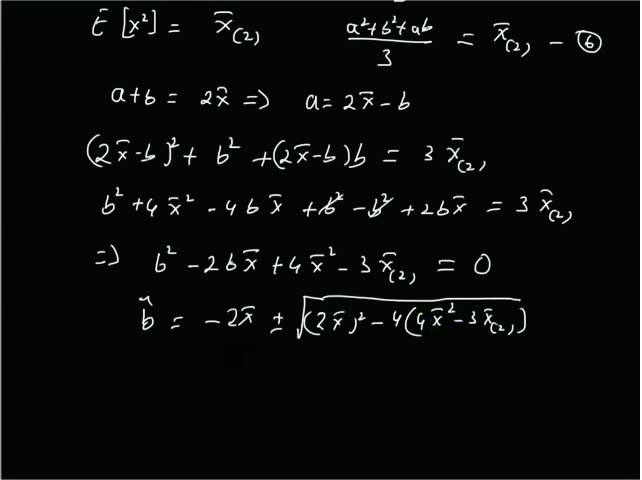 E [x²] = x̄₍₂₎    (a²+b²+ab)/3 = x̄₍₂₎ – ⑥
a+b = 2x̄ => a = 2x̄ – b
(2x̄–b)² + b² + (2x̄–b)b = 3 x̄₍₂₎
b² + 4x̄² – 4bx̄ + b² – b² + 2bx̄ = 3 x̄₍₂₎
=> b² – 2bx̄ + 4x̄² – 3x̄₍₂₎ = 0
b̂ = –2x̄ ± √((2x̄)² – 4(4x̄² – 3x̄₍₂₎))